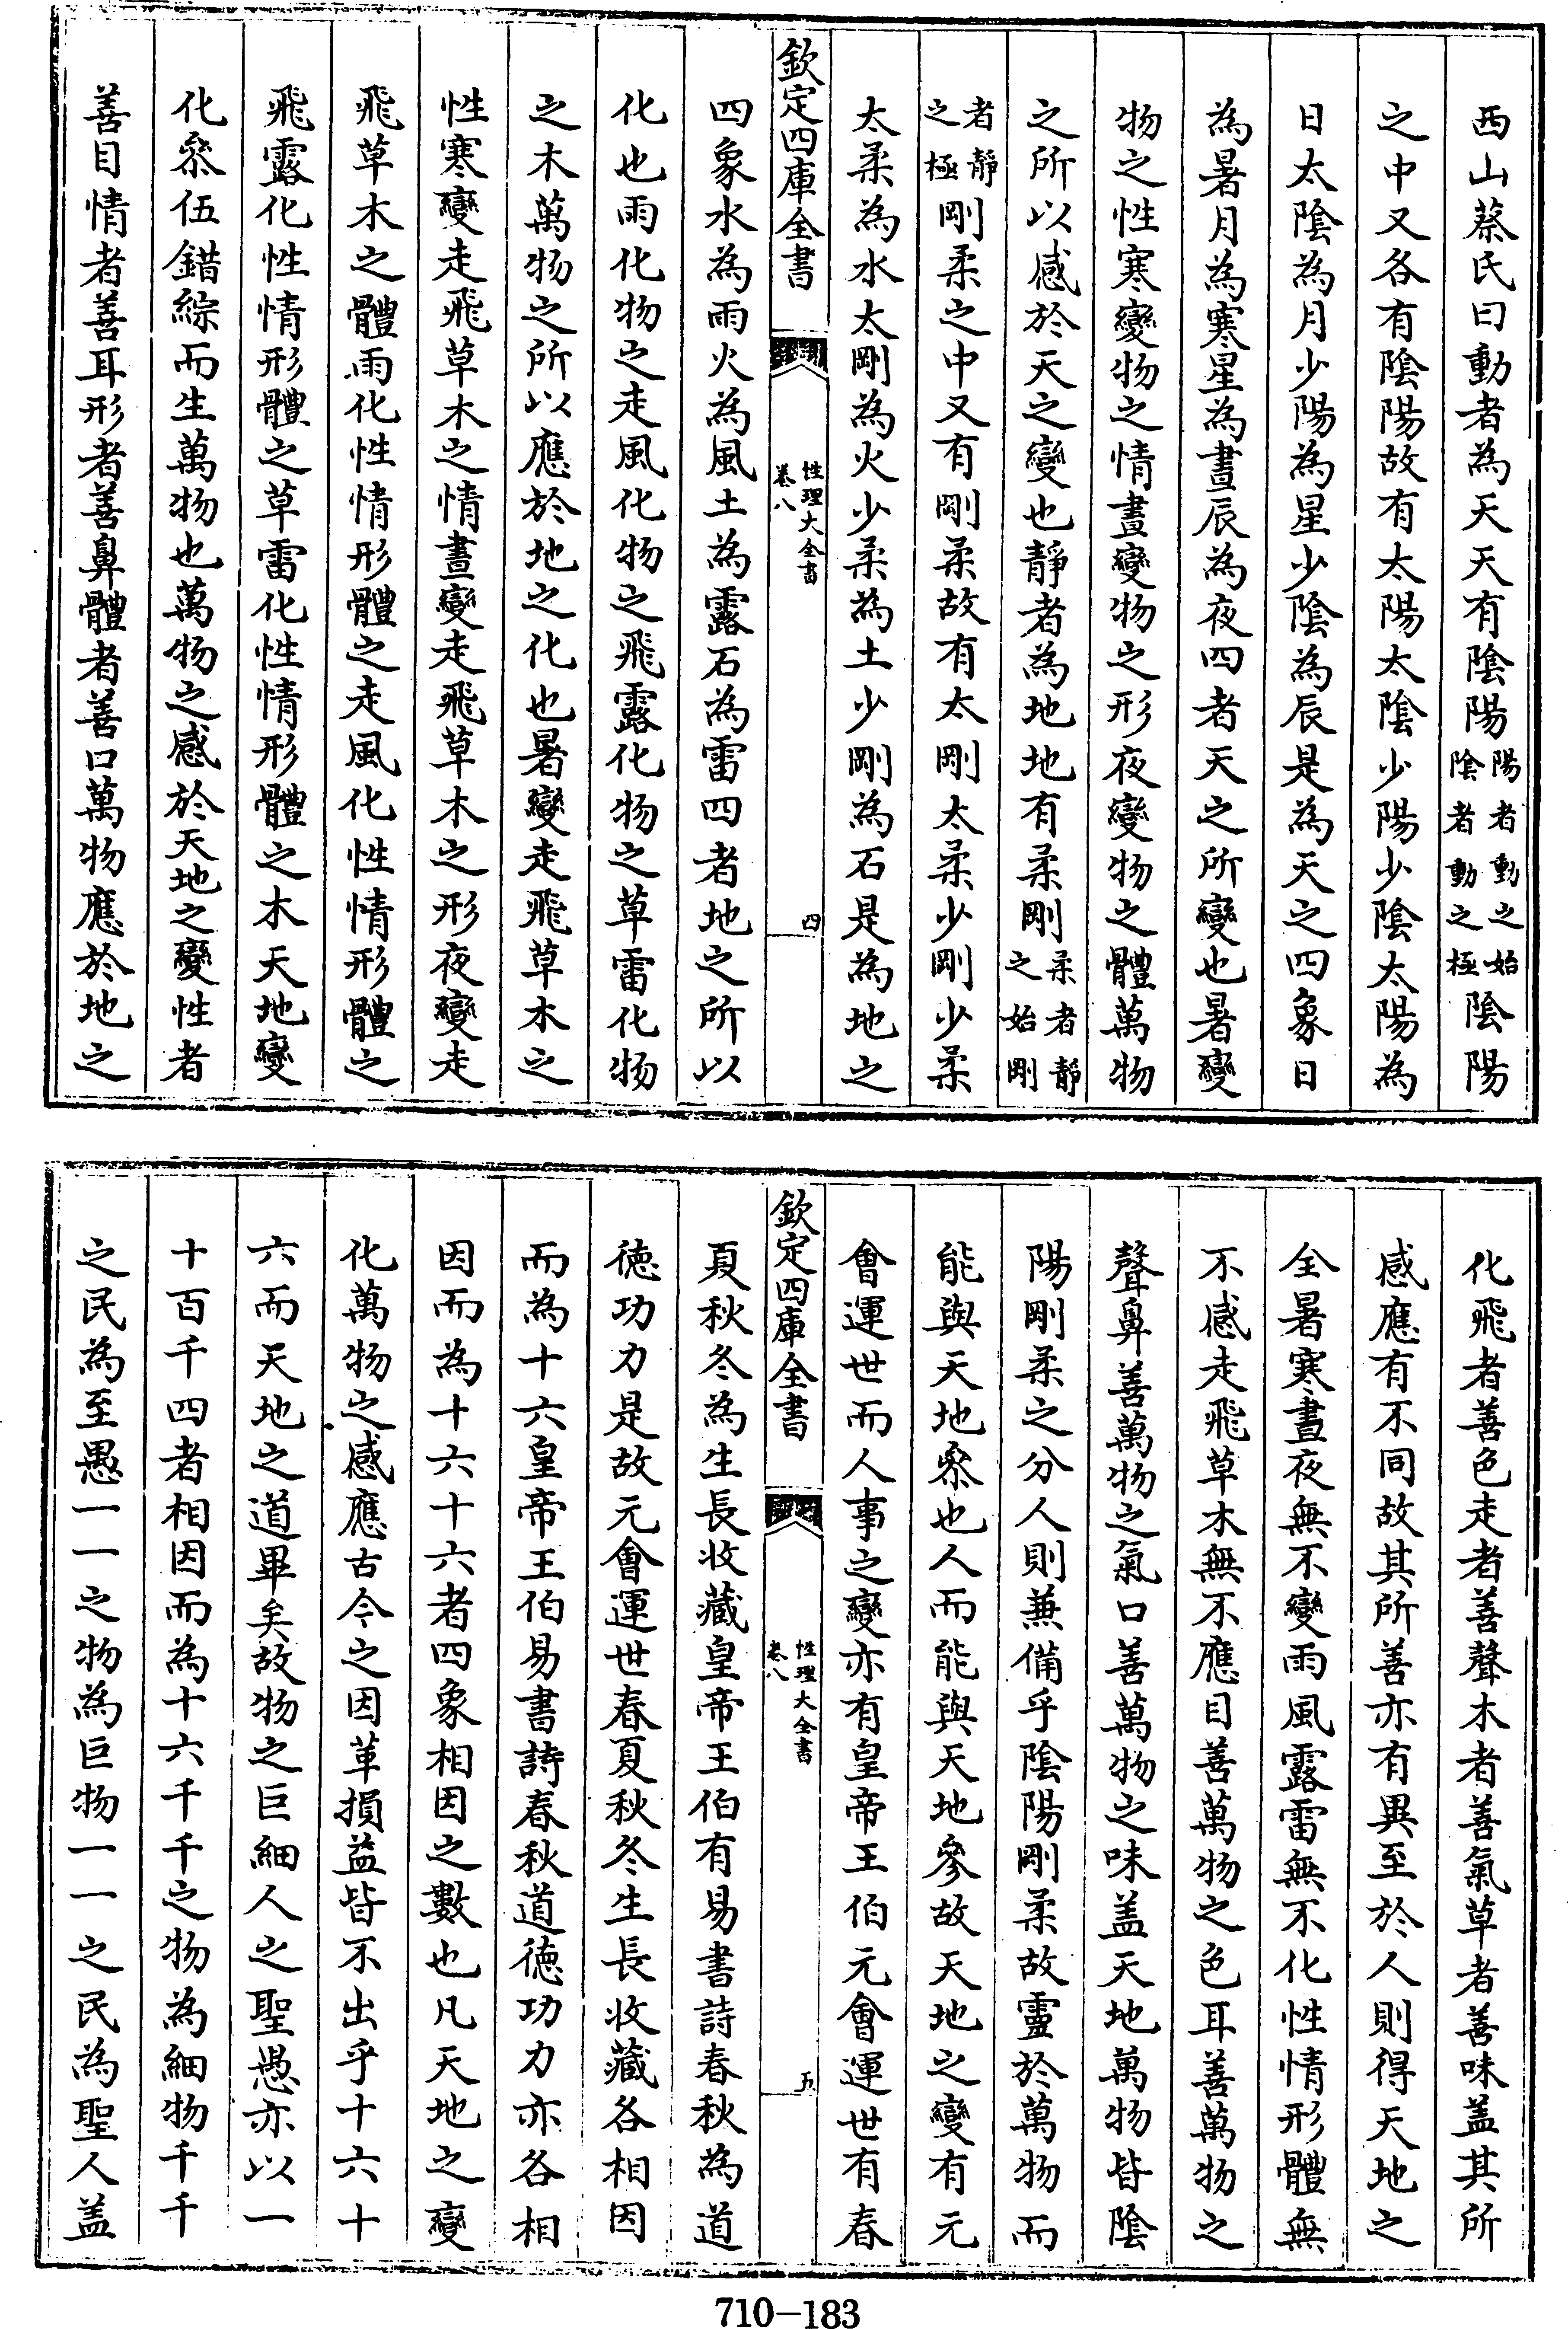 西山蔡氏曰動者為天天有陰陽陽者動之始陰者動之極陰陽
之中又各有陰陽故有太陽太陰少陽少陰太陽為
日太陰為月少陽為星少陰為辰是為天之四象日
為暑月為寒星為晝辰為夜四者天之所變也暑變
物之性寒變物之情晝變物之形夜變物之體萬物
之所以感於天之變也靜者為地地有柔剛柔者靜之始剛
者靜之極剛柔之中又有剛柔故有太剛太柔少剛少柔
太柔為水太剛為火少柔為土少剛為石是為地之
欽定四庫全書
性理大全書
卷八
四
四象水為雨火為風土為露石為雷四者地之所以
化也雨化物之走風化物之飛露化物之草雷化物
之木萬物之所以應於地之化也暑變走飛草木之
性寒變走飛草木之情晝變走飛草木之形夜變走
飛草木之體雨化性情形體之走風化性情形體之
飛露化性情形體之草雷化性情形體之木天地變
化叅伍錯綜而生萬物也萬物之感於天地之變性者
善目情者善耳形者善鼻體者善口萬物應於地之
化飛者善色走者善聲木者善氣草者善味盖其所
感應有不同故其所善亦有異至於人則得天地之
全暑寒晝夜無不變雨風露雷無不化性情形體無
不感走飛草木無不應目善萬物之色耳善萬物之
聲鼻善萬物之氣口善萬物之味盖天地萬物皆陰
陽剛柔之分人則兼備乎陰陽剛柔故靈於萬物而
能與天地叅也人而能與天地參故天地之變有元
會運世而人事之變亦有皇帝王伯元會運世有春
欽定四庫全書
性理大全書
卷八
五
夏秋冬為生長收藏皇帝王伯有易書詩春秋為道
徳功力是故元會運世春夏秋冬生長收藏各相因
而為十六皇帝王伯易書詩春秋道徳功力亦各相
因而為十六十六者四象相因之數也凡天地之變
化萬物之感應古今之因革損益皆不出乎十六十
六而天地之道畢矣故物之巨細人之聖愚亦以一
十百千四者相因而為十六千千之物為細物千千
之民為至愚一一之物為巨物一一之民為聖人盖
710-183